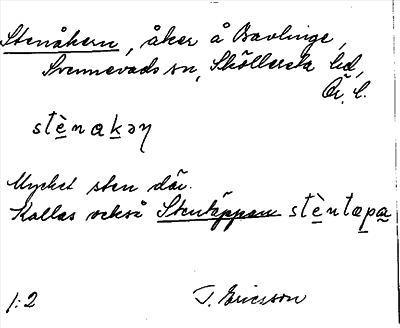 Stenåkern, åker å Bavlinge,
Svennevads sn, Sköllersta hd,
Ör. l.
stènakəṇ
Mycket sten där.
Kallas också Stentäppan stèntæpa
1:2
J. Ericsson